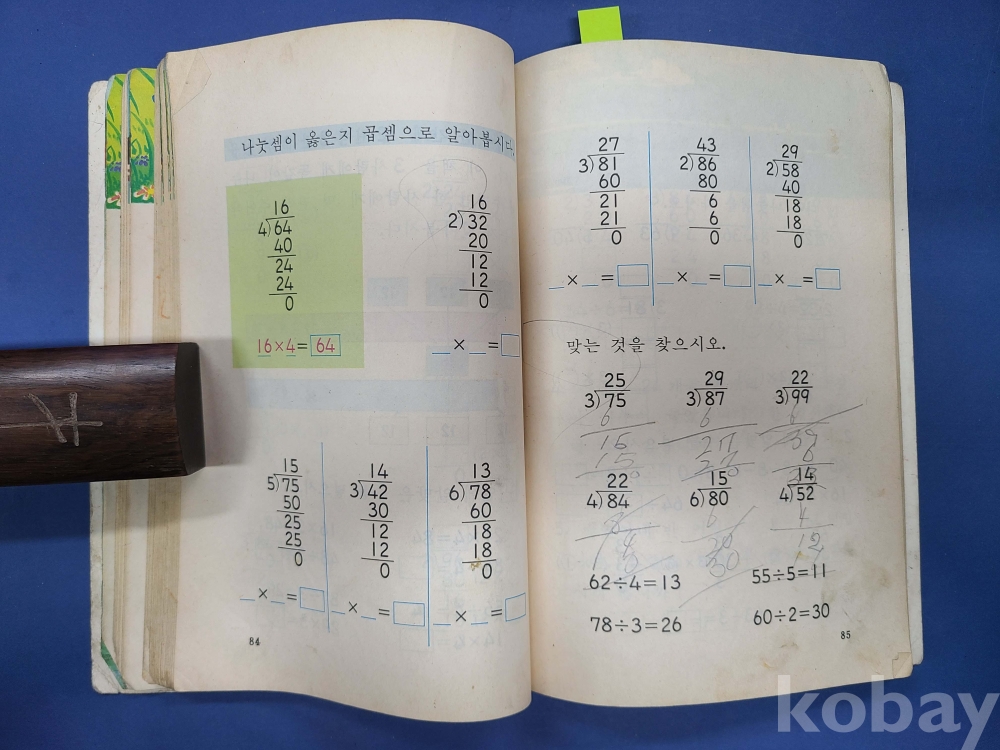 나눗셈이 옳은지 곱셈으로 알아봅시다.
16
4)64
40
24
24
0
16×4=64
16
2)32
20
12
12
0
_×_=□
15
5)75
50
25
25
0
_×_=□
14
3)42
30
12
12
0
_×_=□
13
6)78
60
18
18
0
_×_=□
84
27
3)81
60
21
21
0
_×_=□
43
2)86
80
6
6
0
_×_=□
29
2)58
40
18
18
0
_×_=□
맞는 것을 찾으시오.
25
3)75
6
15
15
29
3)87
6
22
3)99
6
22
4)84
8
15
6)80
6
20
30
14
4)52
4
12
62÷4=13
55÷5=11
78÷3=26
60÷2=30
85
kobay